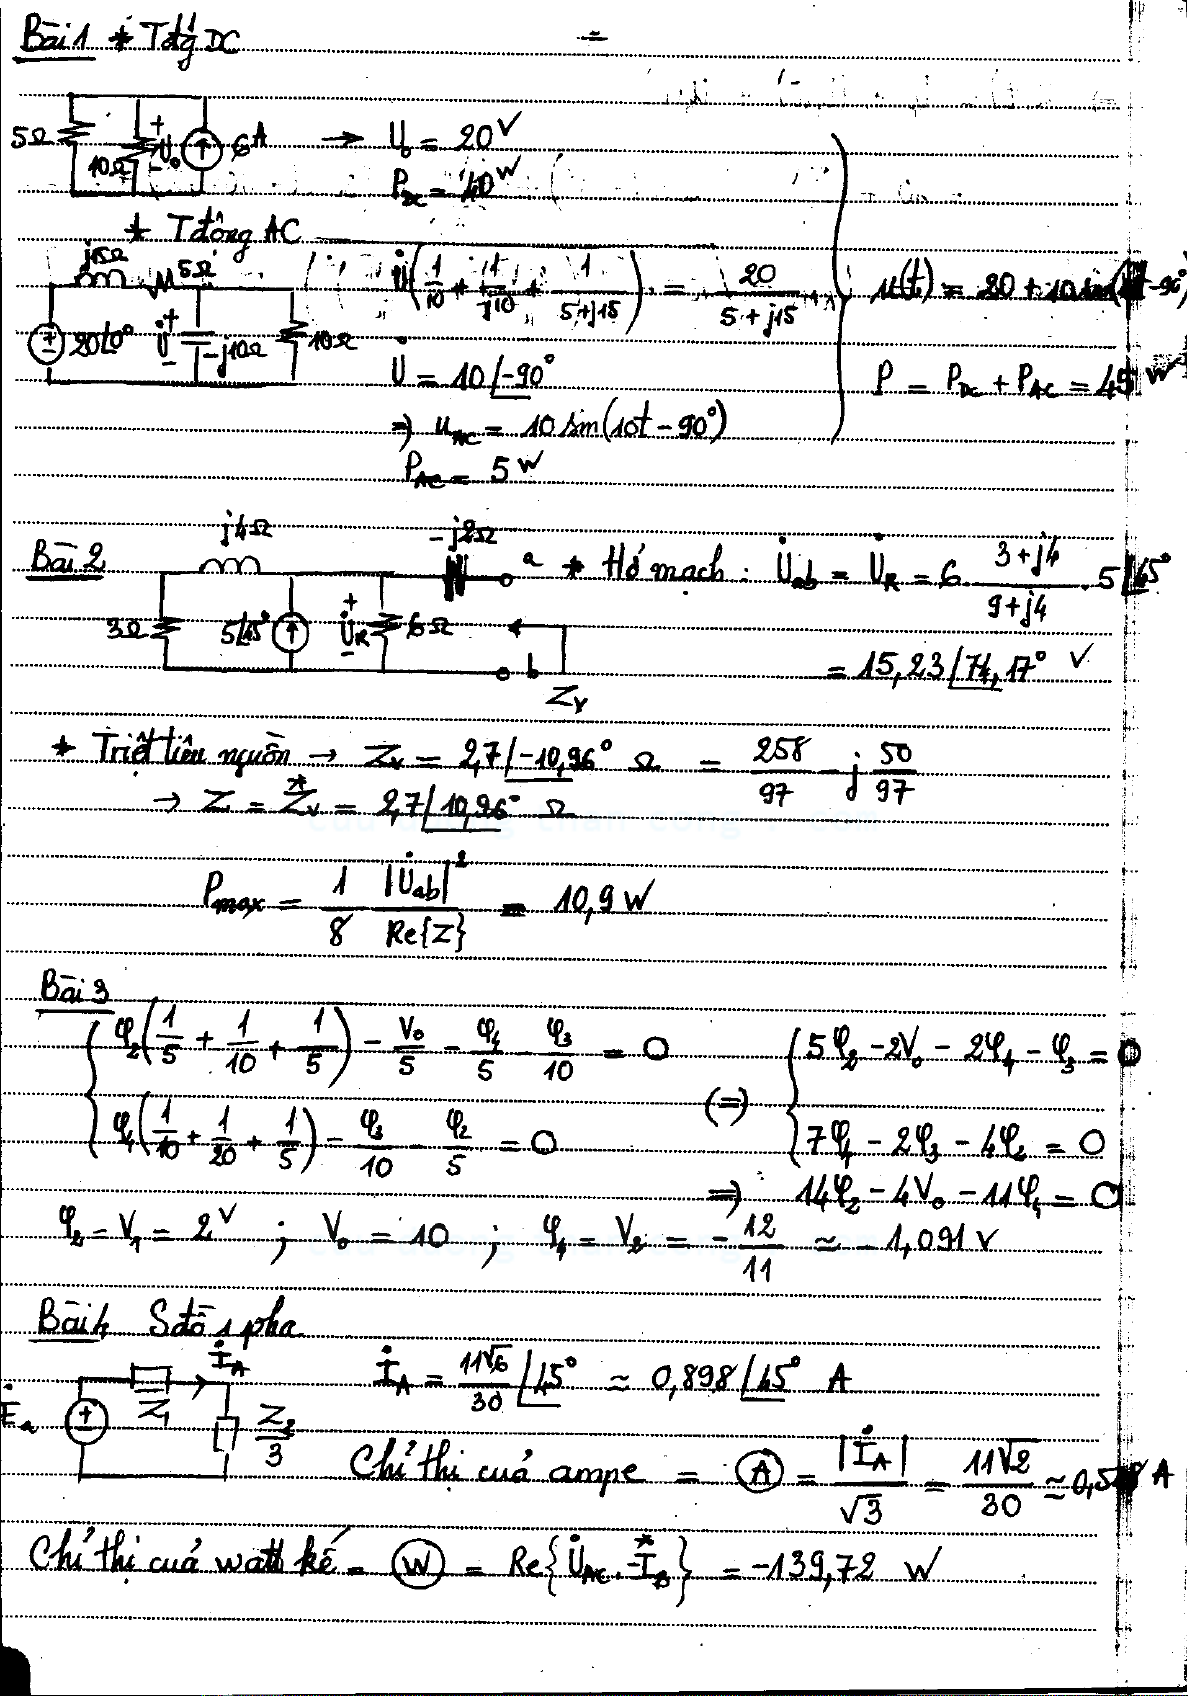 Bài 1 * Tđg DC
5Ω 10Ω + U₀ − 6A → U₀ = 20 V
P_DC = 40 W
* T động AC
j15Ω 5Ω U̇(1/10 + 1/-j10 + 1/(5+j15)) = 20/(5+j15)
u(t) = 20 + 10 sin(10t − 90°)
20∠0° + U̇ − −j10Ω 10Ω
U̇ = 10∠−90°
P = P_DC + P_AC = 45 W
⇒ u_AC = 10 sin(10t − 90°)
P_AC = 5 W
Bài 2 j4Ω −j2Ω a * Hở mạch: U̇ab = U̇R = 6 · (3+j4)/(9+j4) · 5∠45°
3Ω 5∠45° + U̇R − 6Ω b Zv
= 15,23∠74,17° V
* Triệt tiêu nguồn → Zv = 2,7∠−10,96° Ω = 258/97 − j 50/97
→ Z = Z*v = 2,7∠10,96° Ω
Pmax = 1/8 |U̇ab|²/Re{Z} = 10,9 W
Bài 3
φ₂(1/5 + 1/10 + 1/5) − V₀/5 − φ₄/5 − φ₃/10 = 0
5φ₂ − 2V₀ − 2φ₄ − φ₃ = 0
φ₄(1/10 + 1/20 + 1/5) − φ₃/10 − φ₂/5 = 0
(=) 7φ₄ − 2φ₃ − 4φ₂ = 0
⇒ 14φ₂ − 4V₀ − 11φ₄ = 0
φ₂ = V₁ = 2 V ; V₀ = 10 ; φ₄ = V₂ = −12/11 ≈ −1,091 V
Bài 4 Sđồ 1 pha
Ėa Z₁ İA Z₂/3
İA = 11√6/30 ∠45° ≈ 0,898∠45° A
Chỉ thị của ampe = (A) = |İA|/√3 = 11√2/30 ≈ A
Chỉ thị của watt kế = (W) = Re{U̇AC · −I*B} = −139,72 W